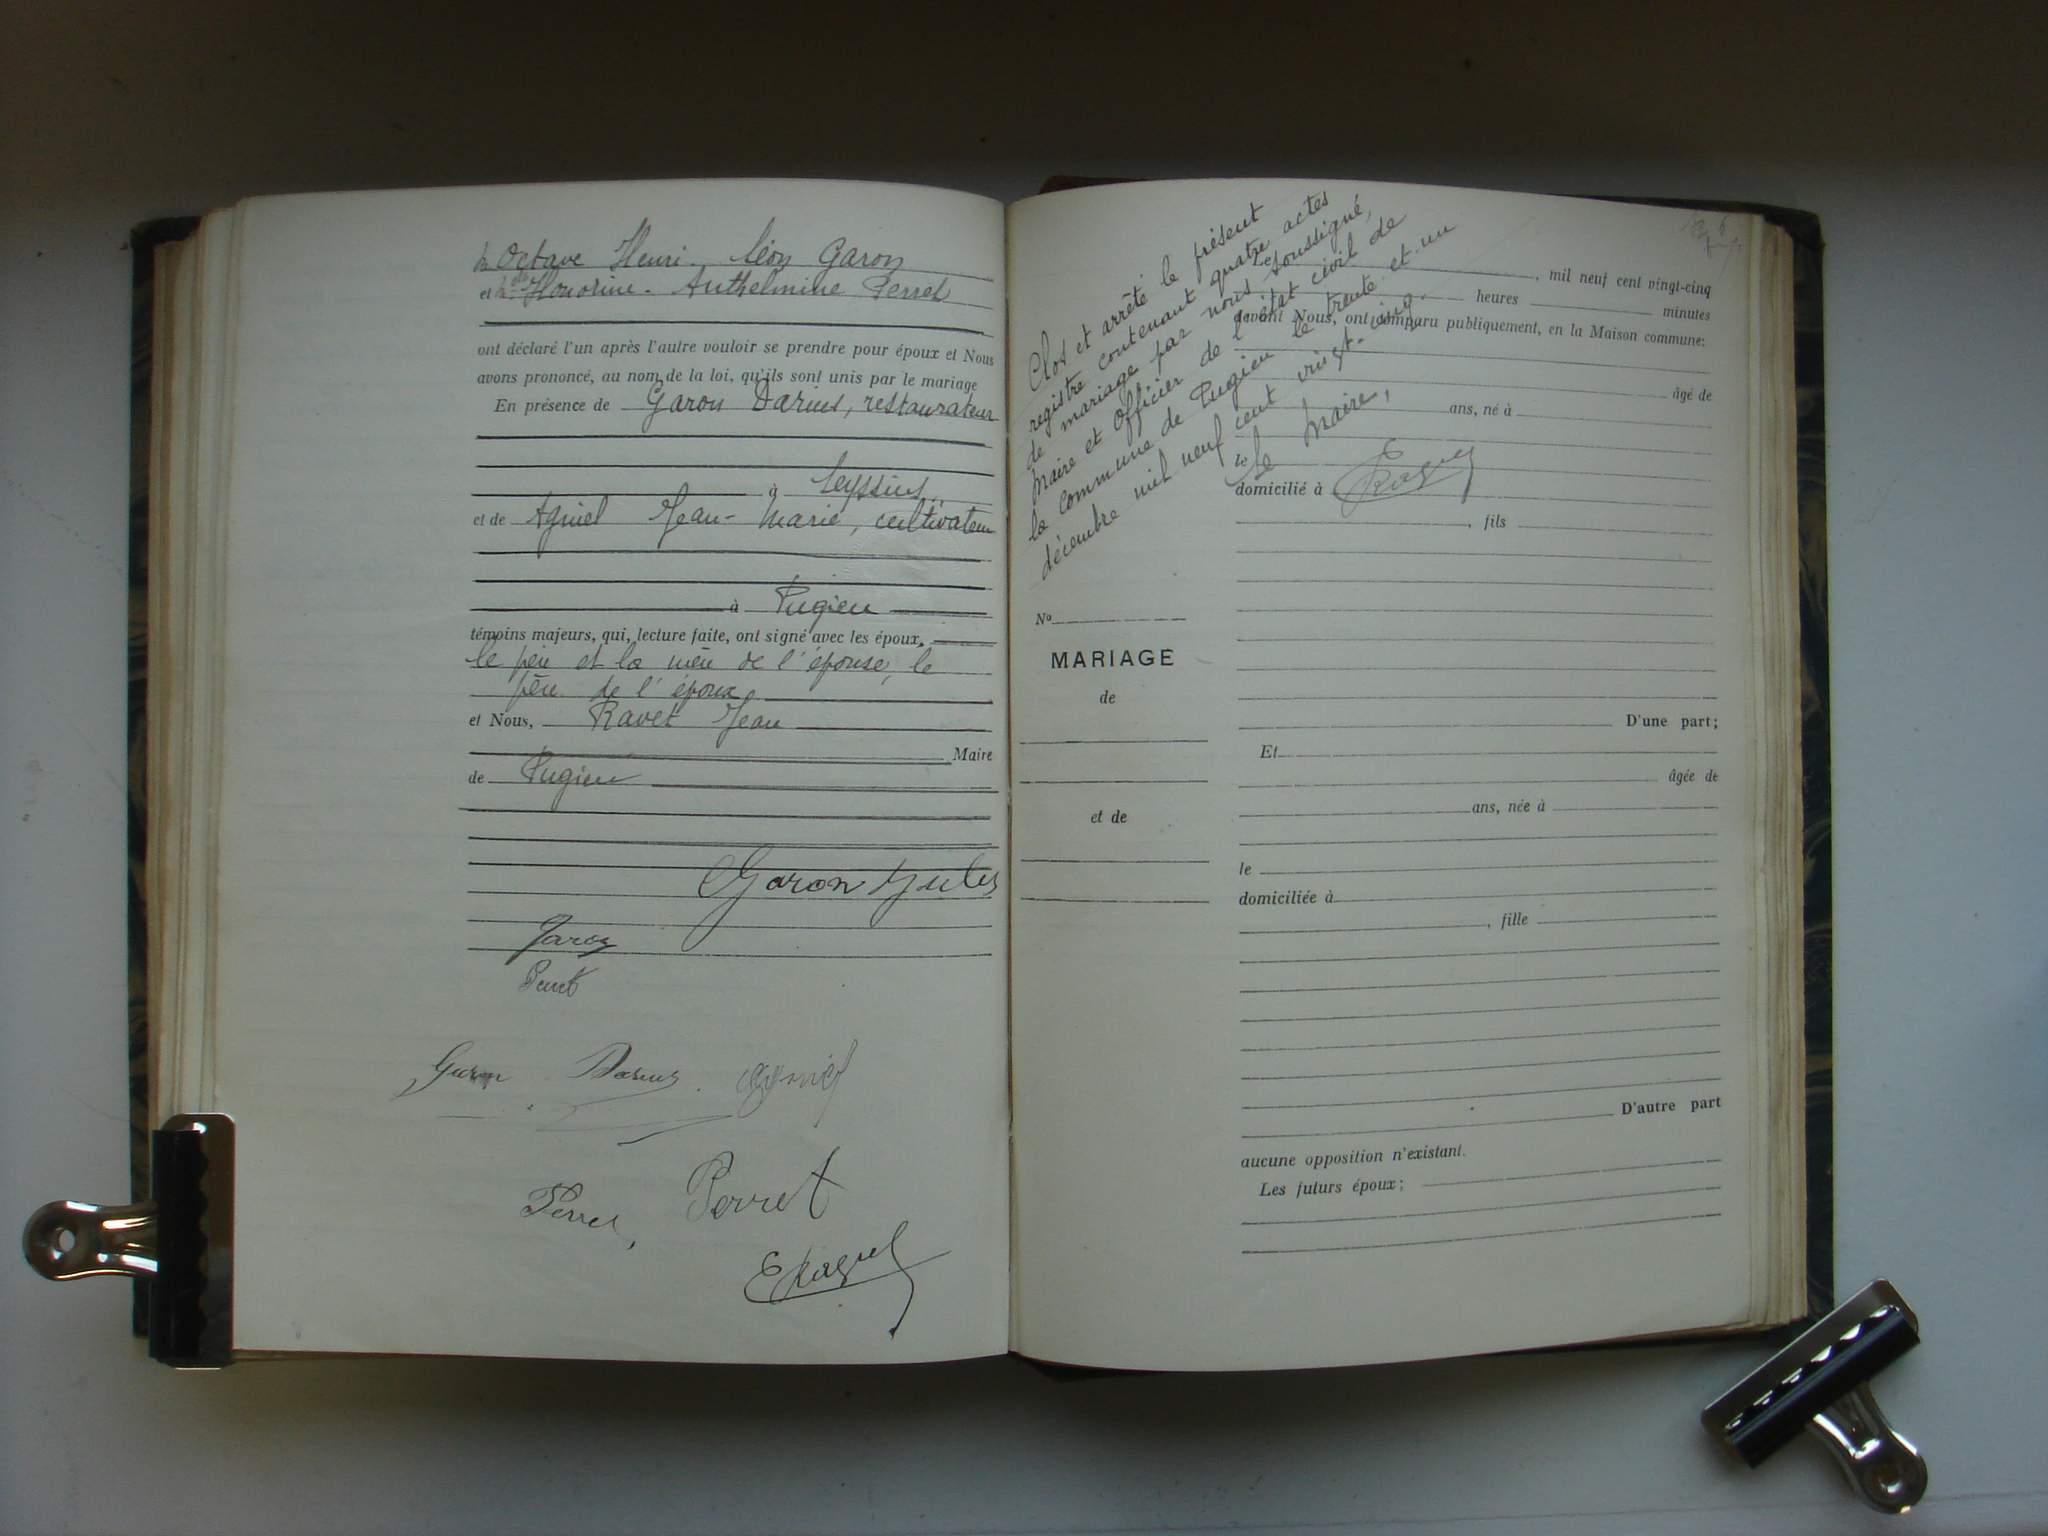 Mr Octave Henri. Léon Garon
et Mlle Honorine. Anthelmine Perret
ont déclaré l'un après l'autre vouloir se prendre pour époux et Nous
avons prononcé, au nom de la loi, qu'ils sont unis par le mariage
En présence de Garon Darius, restaurateur
à Seyssins
et de Agniel Jean-Marie, cultivateur
à Pugieu
témoins majeurs, qui, lecture faite, ont signé avec les époux,
le père et la mère de l'épouse, le
père de l'époux
et Nous, Ravet Jean
Maire
de Pugieu
Garon Jules
Garon
Perret
Garon Darius Agniel
Perret
Perret
Clos et arrêté le présent
registre contenant quatre actes
de mariage par nous soussigné,
Maire et Officier de l'état civil de
la commune de Pugieu le trente et un
décembre mil neuf cent vingt-cinq.
Le Maire,
Le , mil neuf cent vingt-cinq
heures minutes
devant Nous, ont comparu publiquement, en la Maison commune:
âgé de
ans, né à
le
domicilié à
, fils
No
MARIAGE
de
et de
D'une part;
Et
âgée de
ans, née à
le
domiciliée à
, fille
D'autre part
aucune opposition n'existant.
Les futurs époux;